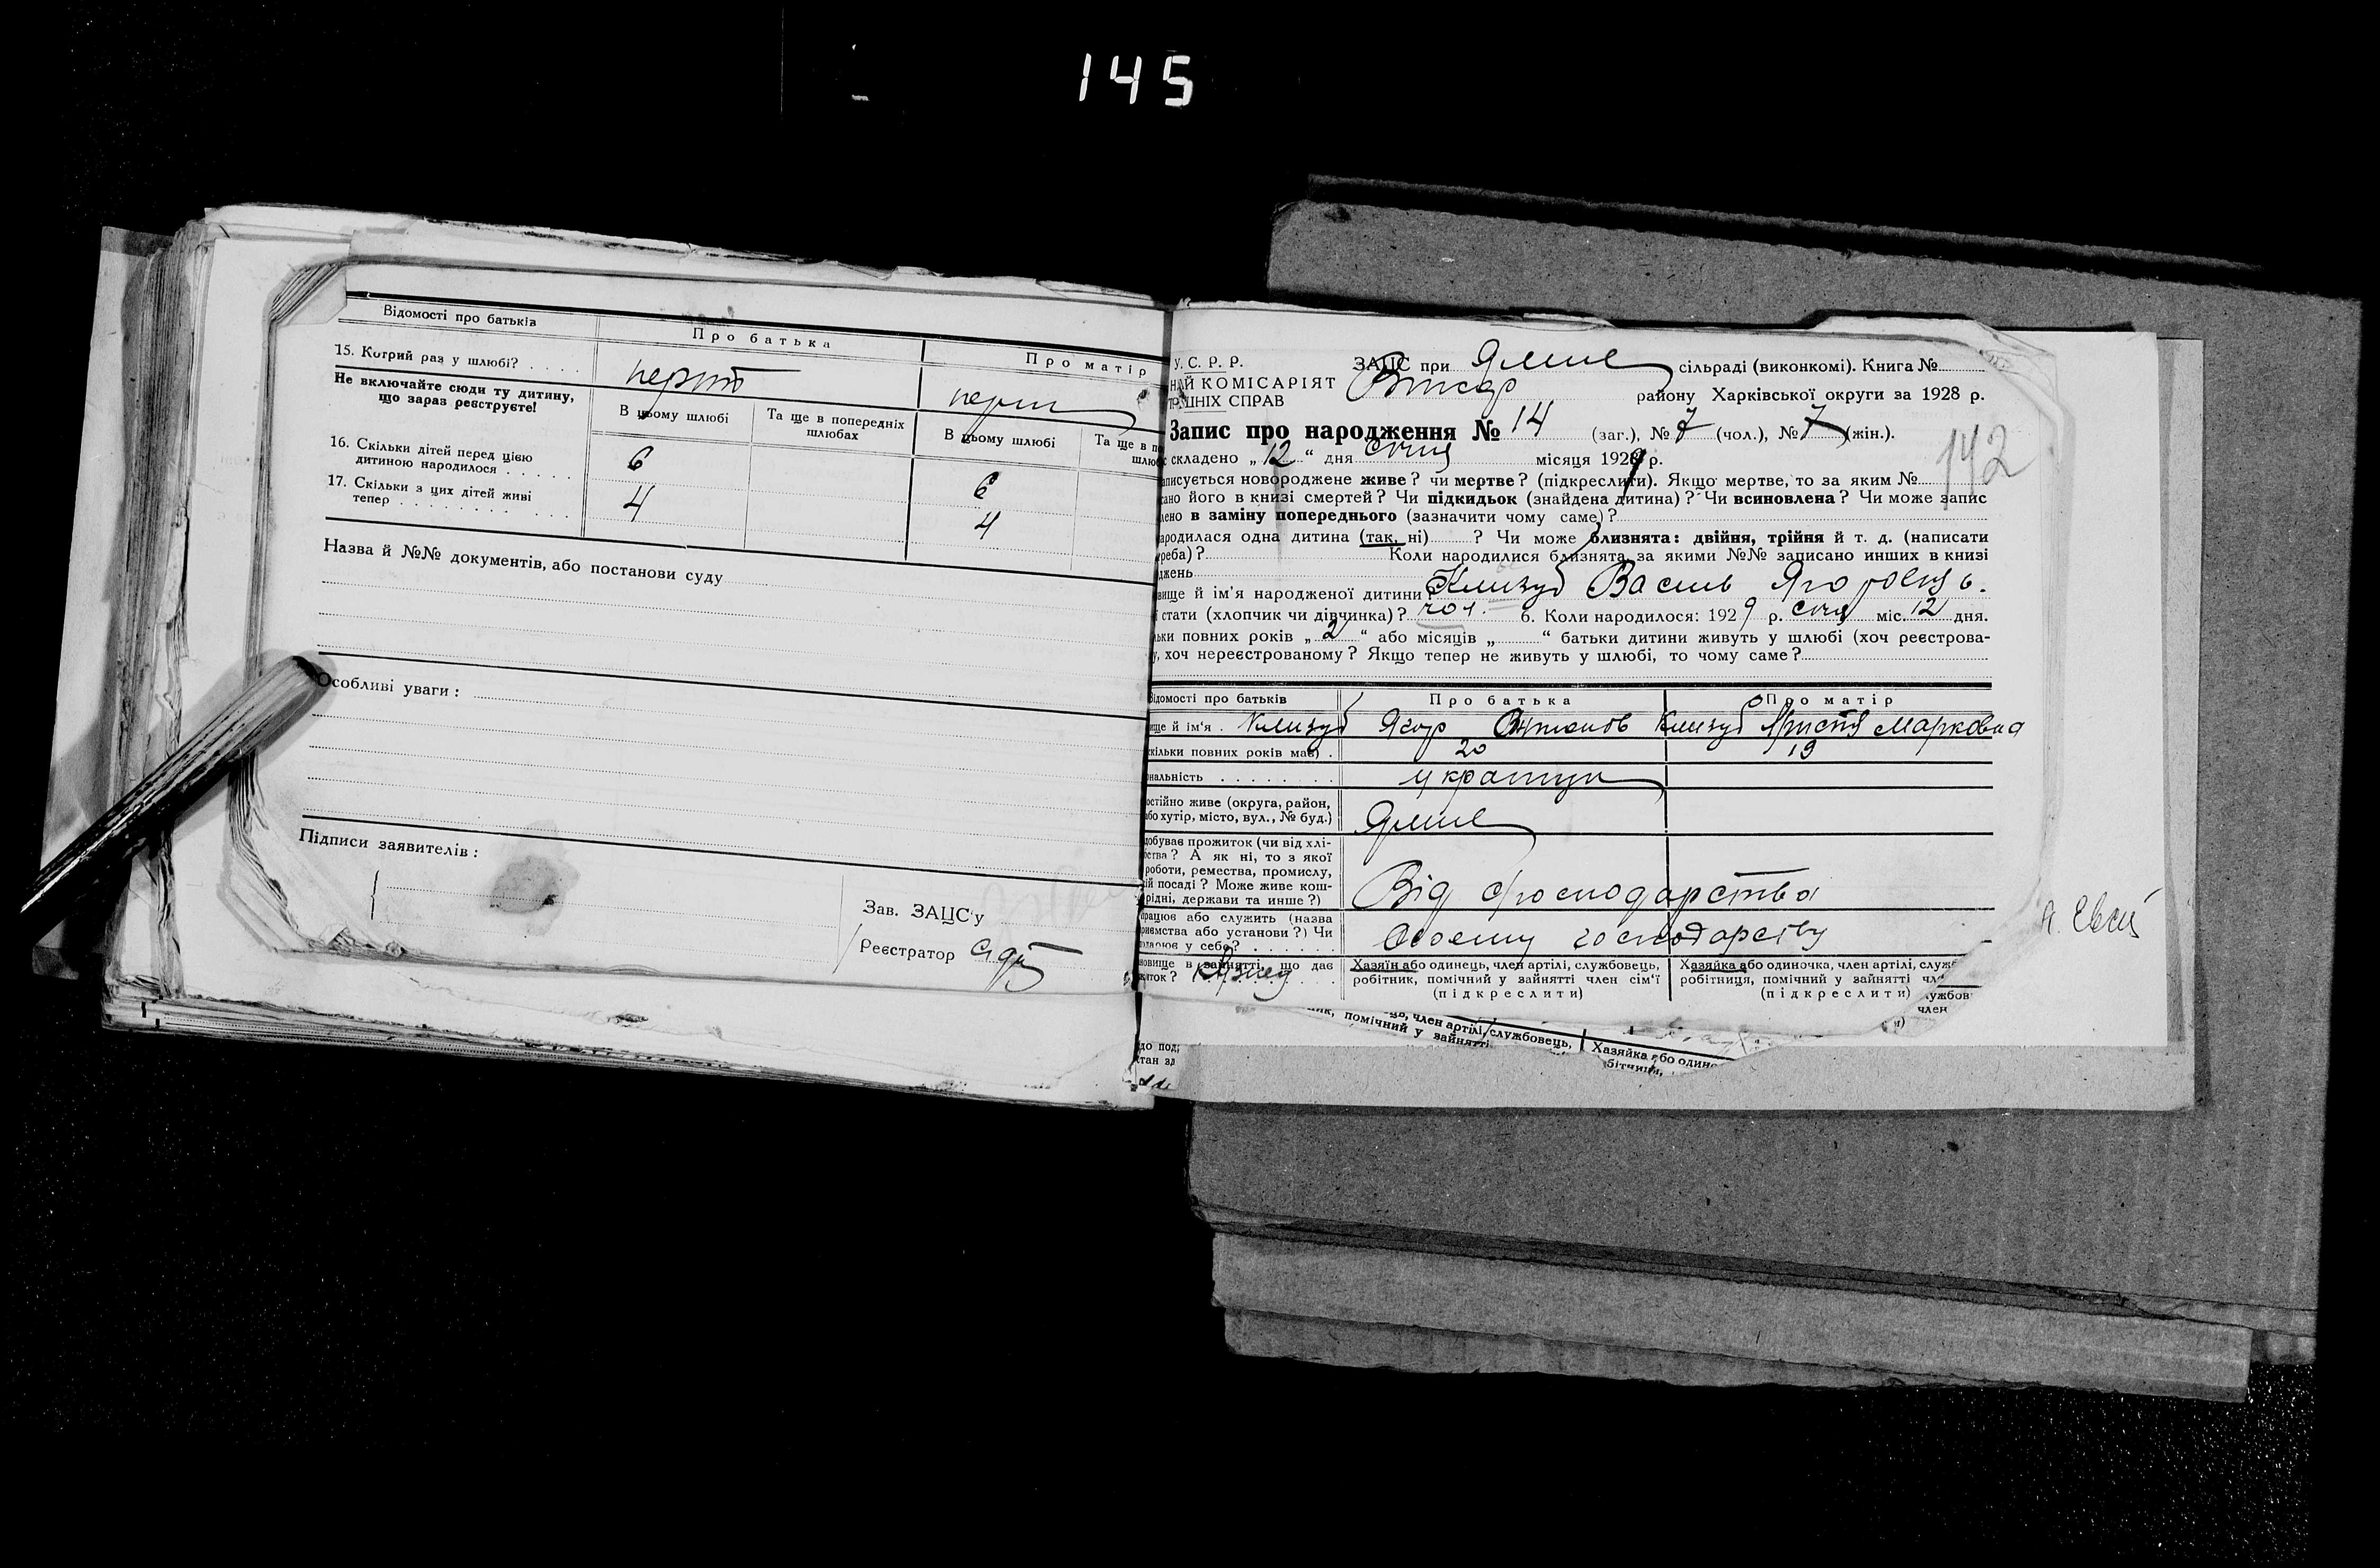 145
Відомості про батьків
Про батька
Про матір
15. Котрий раз у шлюбі? . . . .
Не включайте сюди ту дитину,
що зараз реєструєте!
В цьому шлюбі
Та ще в попередніх
шлюбах
В цьому шлюбі
Та ще в по
шлюб
16. Скільки дітей перед цією
дитиною народилося . . . .
6
6
17. Скільки з цих дітей живі
тепер . . . . . . . . . . .
4
4
Назва й №№ документів, або постанови суду
Особливі уваги :
Підписи заявителів :
Зав. ЗАЦС'у
Реєстратор
У. С. Р. Р.
ЗАЦС при сільраді (виконкомі). Книга №
КОМІСАРІЯТ
СПРАВ
району Харківської округи за 1928 р.
Запис про народження № 14 (заг.), № 7 (чол.), № 7 (жін.).
142
складено „ 12 “ дня січня місяця 1929 р.
аписується новороджене живе? чи мертве? (підкреслити). Якщо мертве, то за яким №
ано його в книзі смертей? Чи підкидьок (знайдена дитина)? Чи всиновлена? Чи може запис
лено в заміну попереднього (зазначити чому саме)?
ародилася одна дитина (так, ні) ? Чи може близнята: двійня, трійня й т. д. (написати
реба)? Коли народилися близнята, за якими №№ записано инших в книзі
джень
вище й ім'я народженої дитини Клизуб Василь Ягорович.
і стати (хлопчик чи дівчинка)? чол. 6. Коли народилося: 1929 р. січня міс. 12 дня.
льки повних років „ 2 “ або місяців „ “ батьки дитини живуть у шлюбі (хоч реєстрова-
у, хоч нереєстрованому? Якщо тепер не живуть у шлюбі, то чому саме?
Відомості про батьків
Про батька
Про матір
ище й ім'я . Клизуб Ягор Клизуб Марковна
кільки повних років має) . 20 19
нальність . . . . . . . .
остійно живе (округа, район,
або хутір, місто, вул., № буд.)
добуває прожиток (чи від хлі-
ства? А як ні, то з якої
роботи, ремества, промислу,
ій посаді? Може живе кош-
рідні, держави та инше?)
Від господарства
працює або служить (назва
риємства або установи?) Чи
у себе? . . . . . .
Своему господарству
новище в зайнятті, що дає
житок?
Хазяїн або одинець, член артілі, службовець,
робітник, помічний у зайнятті член сім'ї
(підкреслити)
Хазяйка або одиночка, член артілі, служб
робітниця, помічний у зайнятті чл
(підкреслити)
лужбов
член
член артілі, службовець,
помічний у зайнятті
Хазяйка або одино